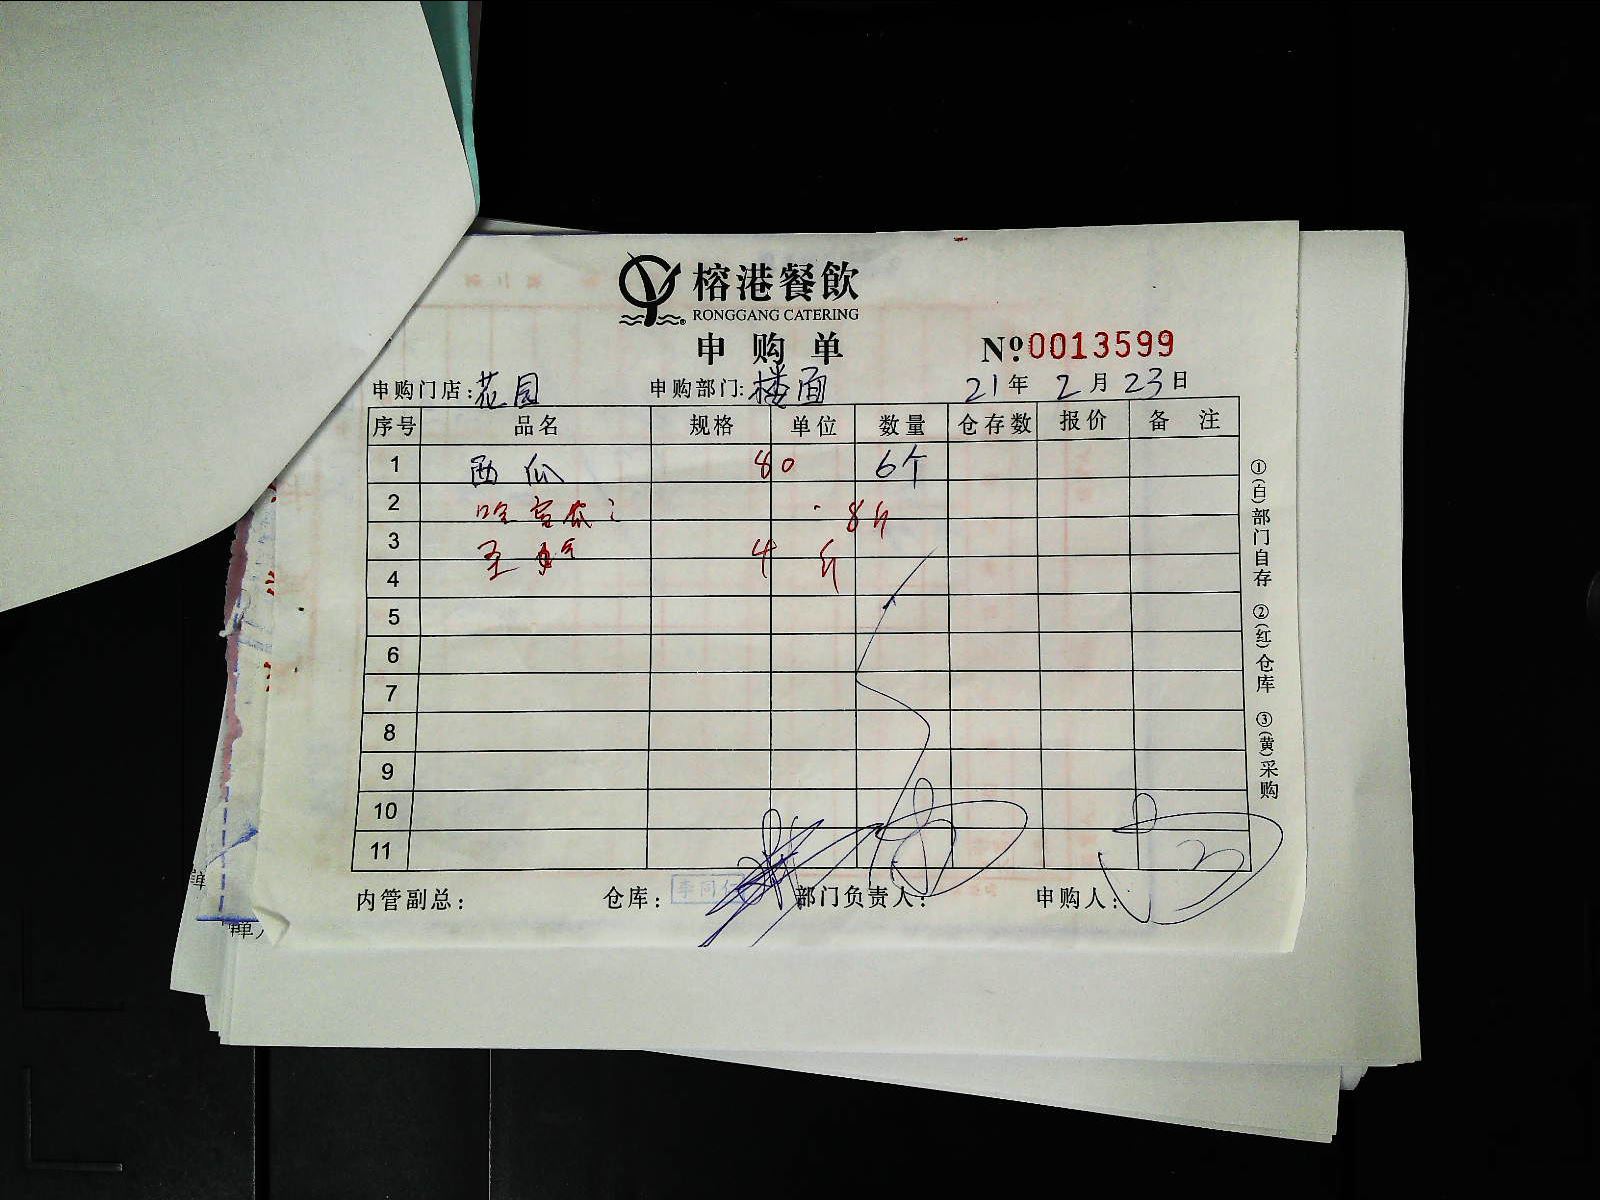 榕港餐飲
RONGGANG CATERING
申购单
Nº 0013599
申购门店:花园 申购部门:楼面 21年2月23日
序号 品名 规格 单位 数量 仓存数 报价 备注
1 西瓜 80 6个
2 8斤
3 4 斤
4
5
6
7
8
9
10
11
内管副总: 仓库: 部门负责人: 申购人:
①(白)部门自存 ②(红)仓库 ③(黄)采购